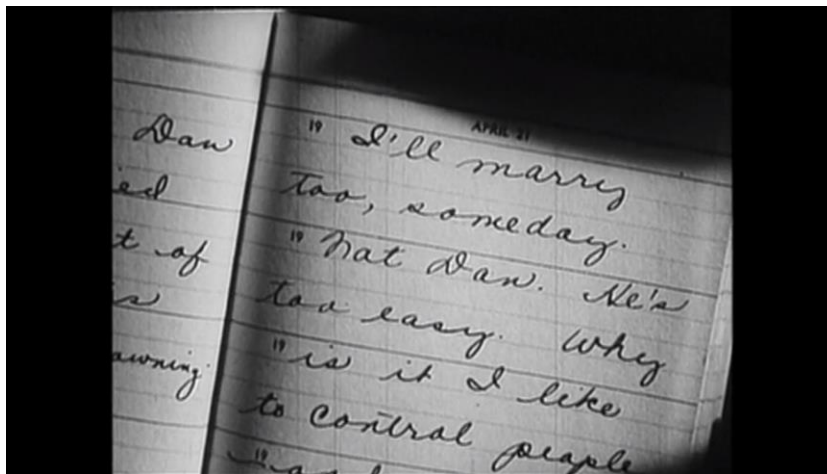 Dan
ed
t of
s
awning.
APRIL 21
19 I'll marry
too, someday.
19 Not Dan. He's
too easy. Why
19 is it I like
to control people
19